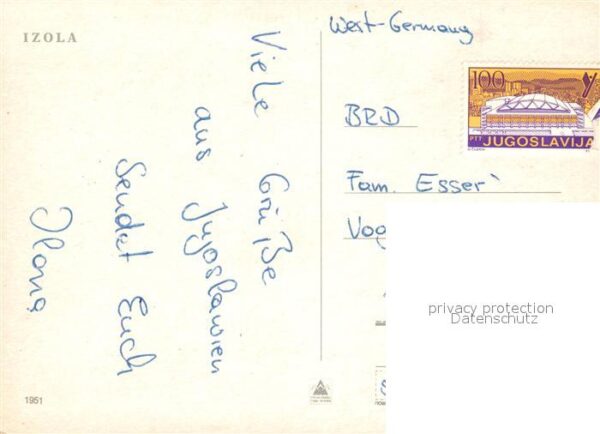 IZOLA
Viele Grüße
aus Jugoslawien
sendet Euch
Ilona
1951
West-Germany
100
PTT JUGOSLAVIJA
BRD
Fam. Esser
Vog
privacy protection
Datenschutz